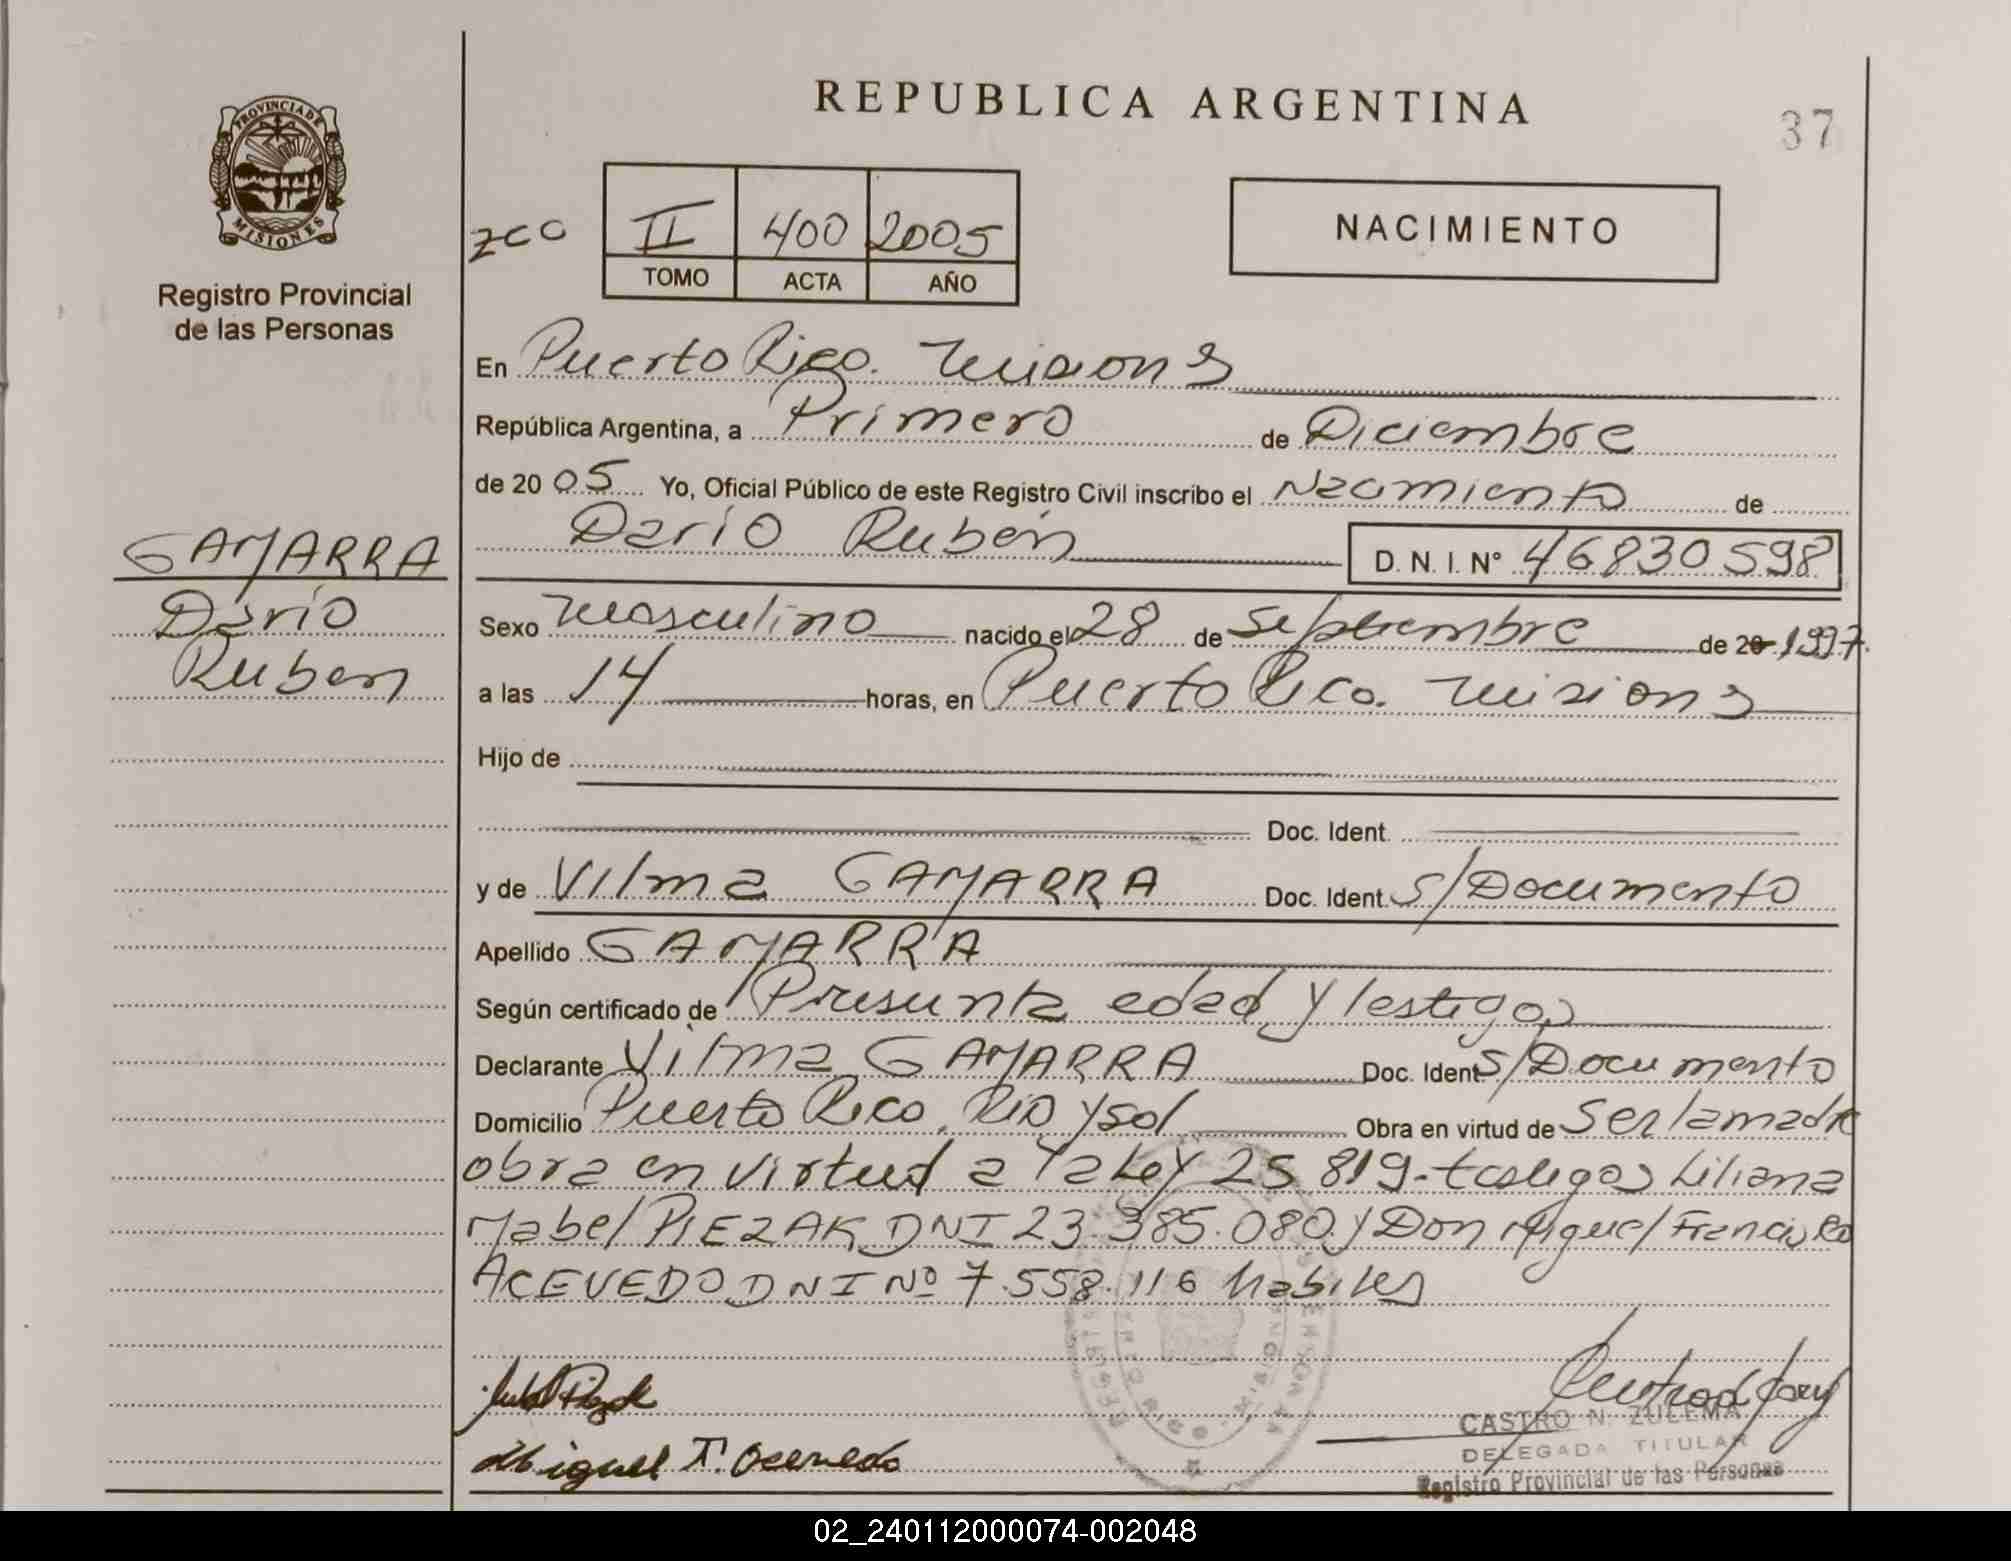 REPUBLICA ARGENTINA
37
PROVINCIA DE
MISIONES
Registro Provincial
de las Personas
II 400 2005
TOMO ACTA AÑO
NACIMIENTO
En Puerto Rico. Misiones
República Argentina, a Primero de Diciembre
de 20 05 Yo, Oficial Público de este Registro Civil inscribo el Nacimiento de
Darío Rubén D. N. I. Nº 46830598
GAMARRA
Darío
Ruben
Sexo Masculino nacido el 28 de Septiembre de 20 1997.
a las 14 horas, en Puerto Rico. Misiones
Hijo de
Doc. Ident.
y de Vilma GAMARRA Doc. Ident. S/Documento
Apellido GAMARRA
Según certificado de Presunta edad y testigos
Declarante Vilma GAMARRA Doc. Ident S/Documento
Domicilio Puerto Rico, Rio y sol Obra en virtud de Ser la madre
obra en virtud a la Ley 25 819-testigos Liliana
Mabel PIEZAK DNI 23.385.080 y Don Miguel Francisco
ACEVEDO DNI Nº 7.558.116 habiles
Miguel F. Acevedo
CASTRO N. ZULEMA
DELEGADA TITULAR
Registro Provincial de las Personas
02_240112000074-002048